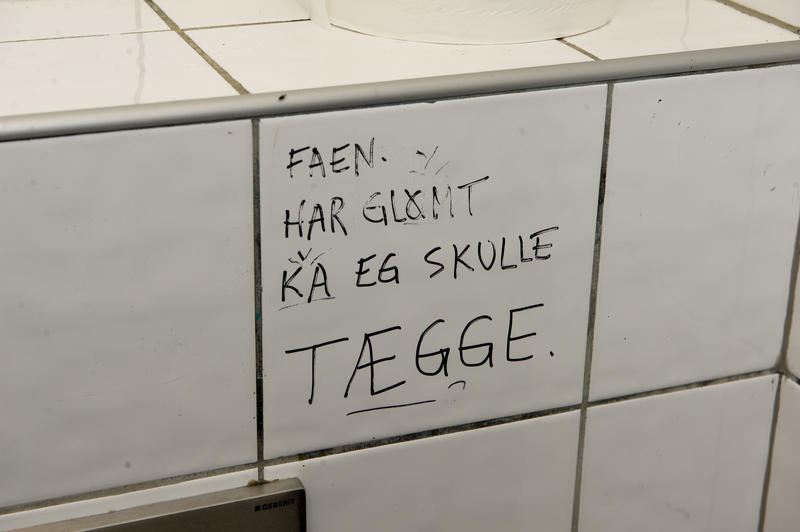 FAEN.
HAR GLØMT
KA EG SKULLE
TÆGGE.
GEBERIT